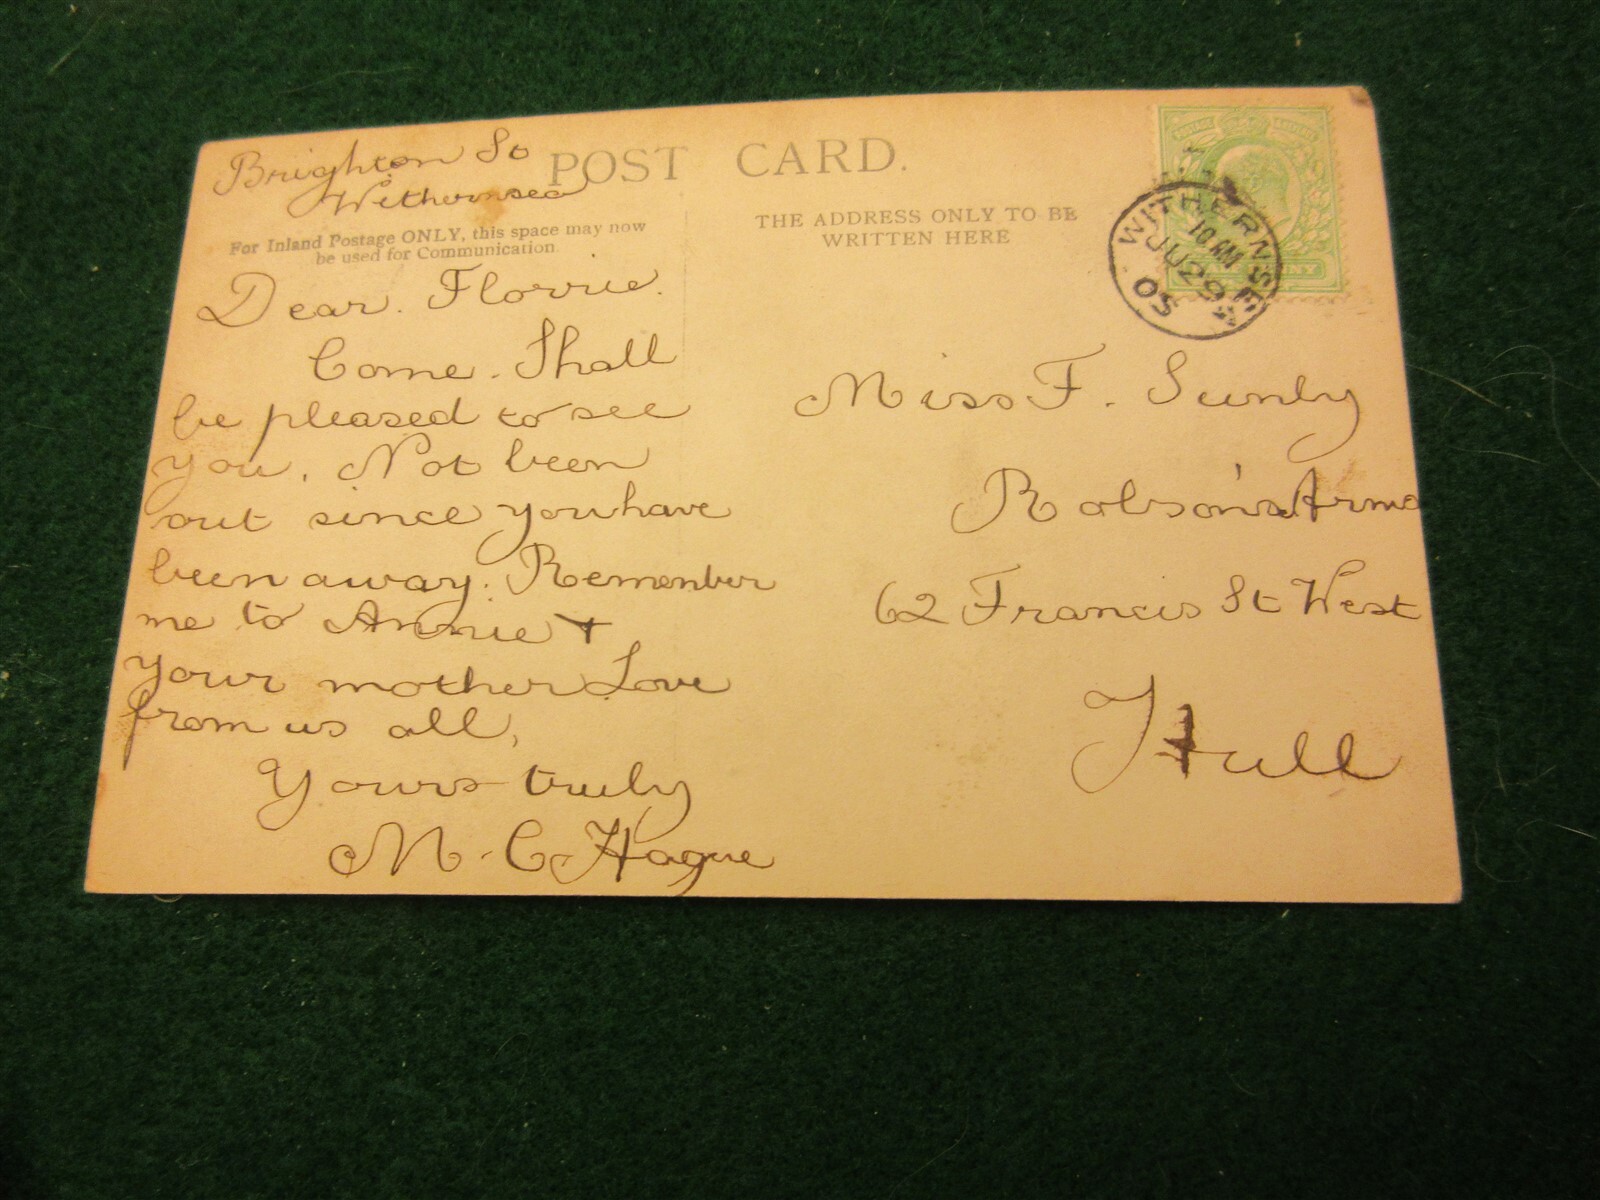 Brighton St
Withernsea
POST CARD.
For Inland Postage ONLY, this space may now
be used for Communication.
THE ADDRESS ONLY TO BE
WRITTEN HERE
WITHERNSEA
10 AM
JU 29
05
Dear. Florrie.
Come. Shall
be pleased to see
you. Not been
out since you have
been away. Remember
me to Annie +
your mother Love
from us all,
Yours truly
M. C. Hague
Miss F. Sunly
Robson's Arms
62 Francis St West
Hull